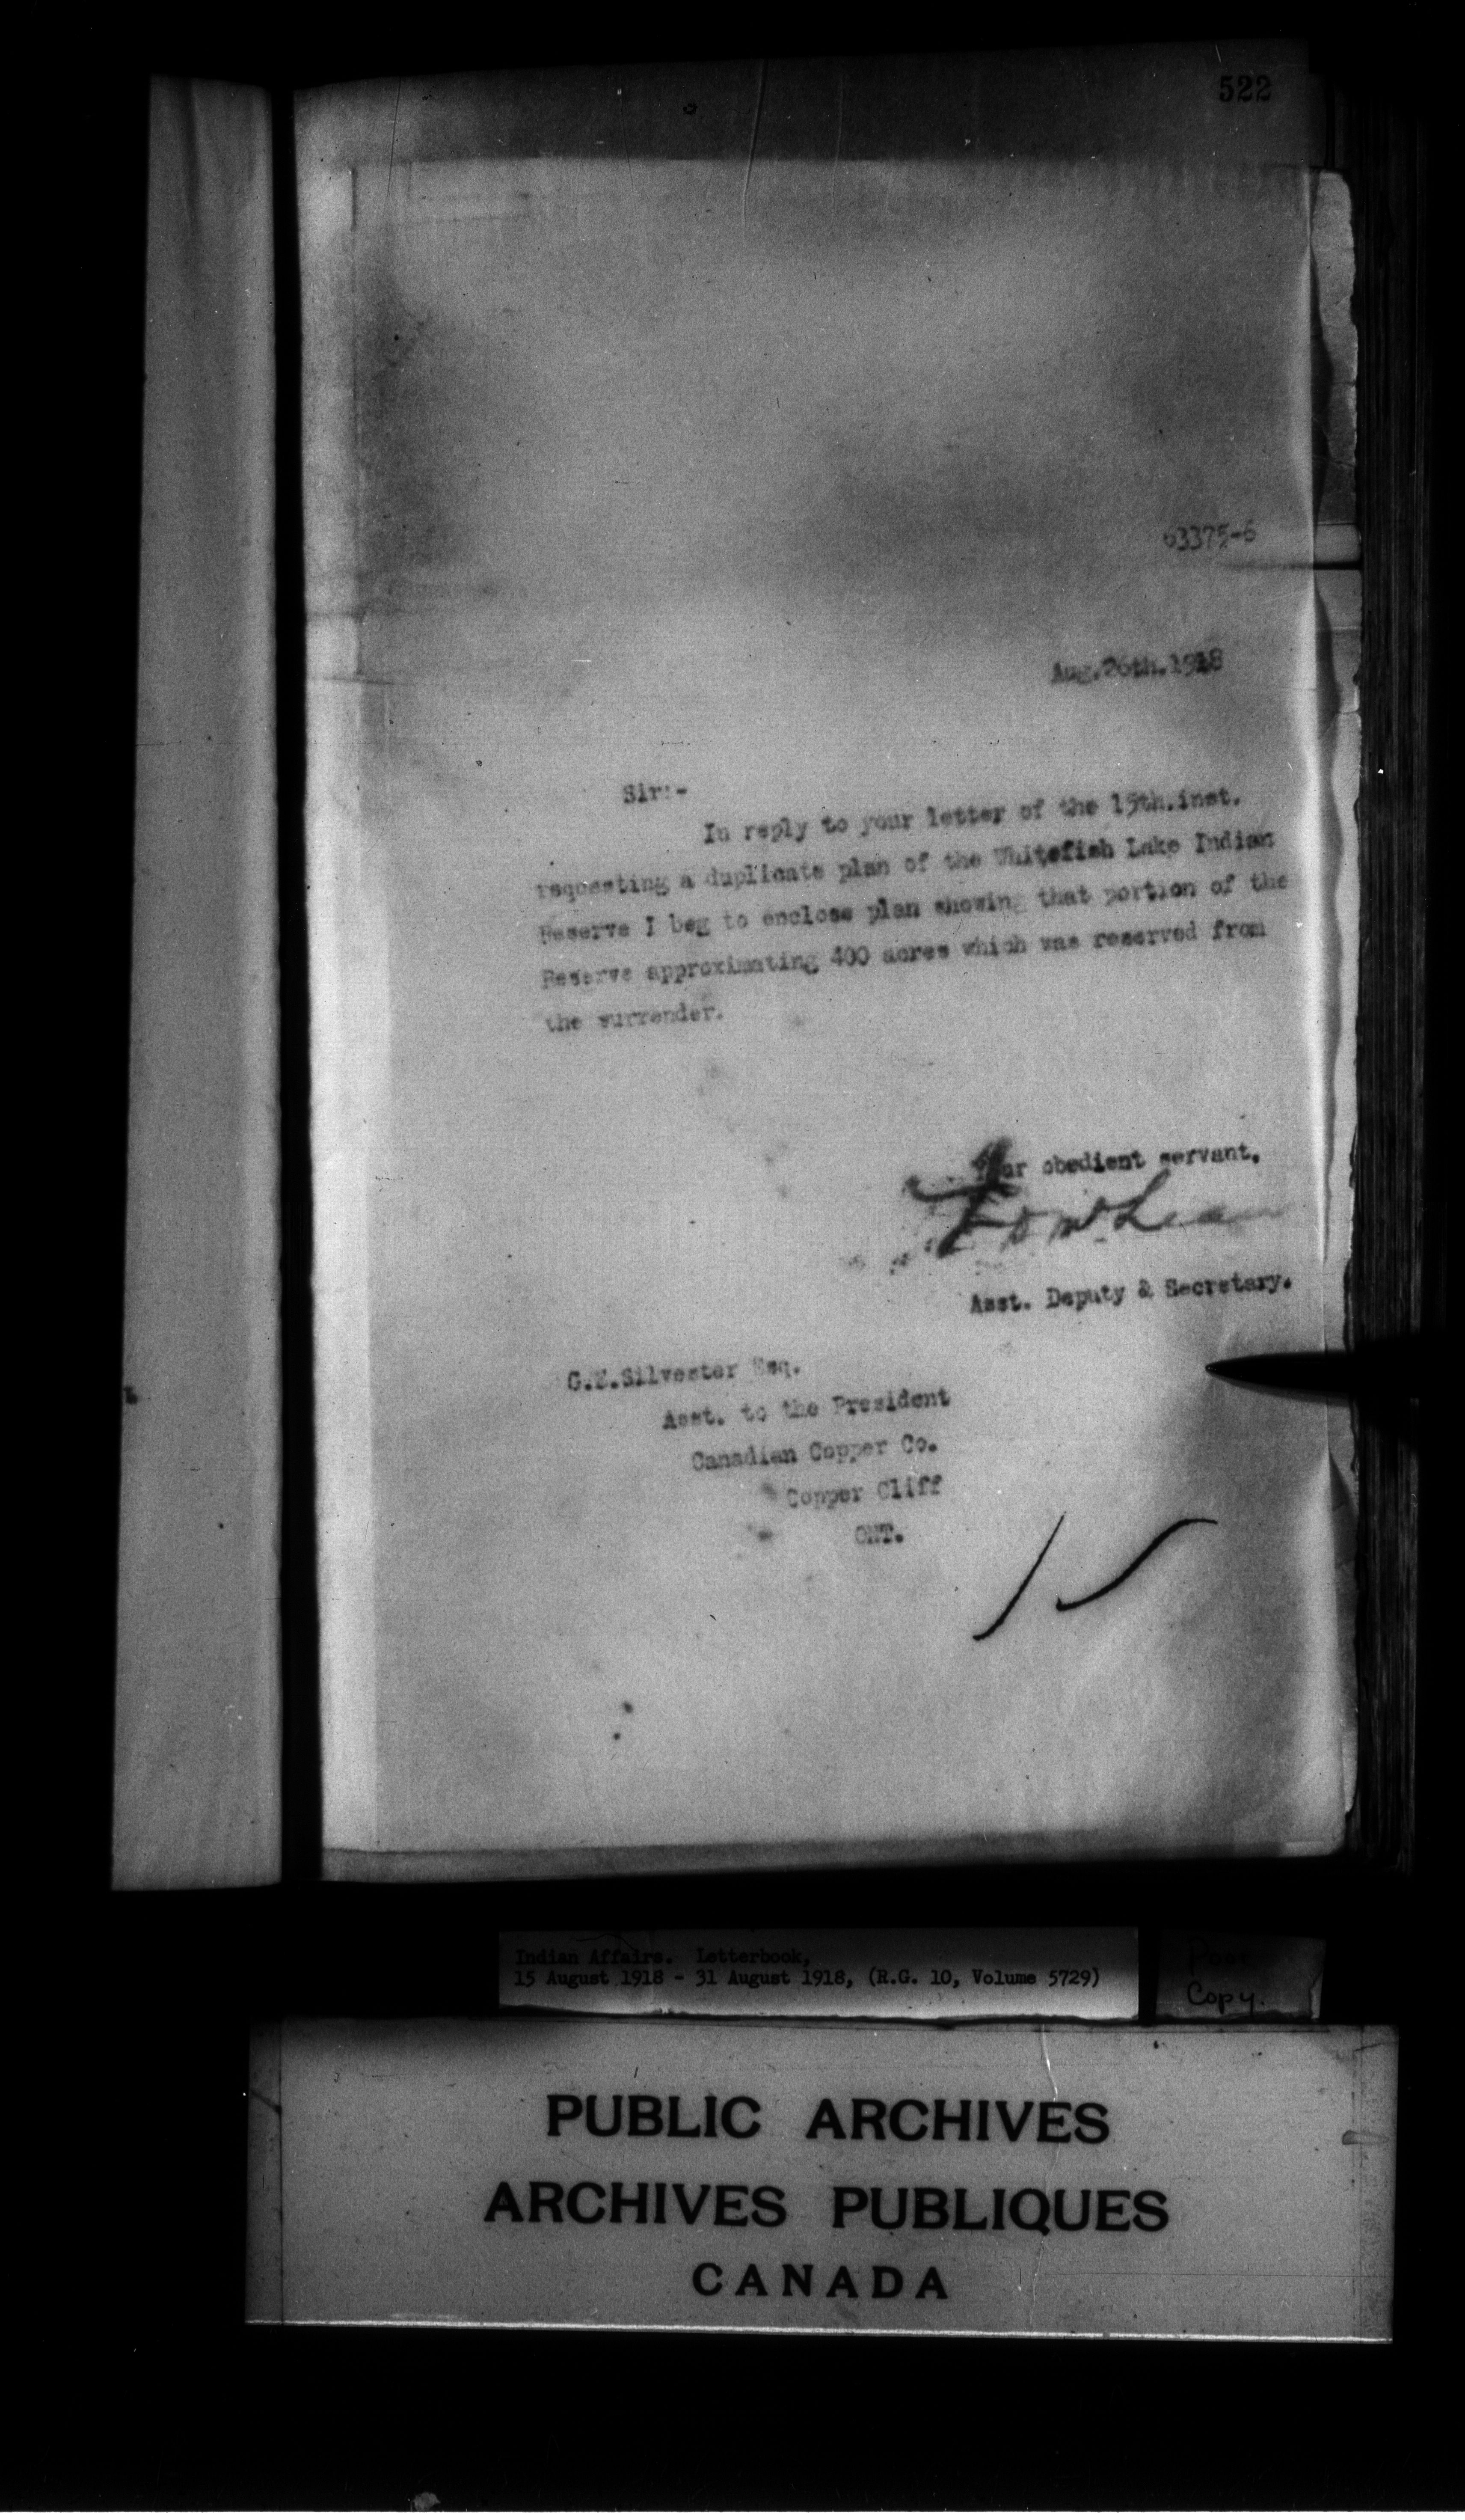 522
63375-6
Aug.26th.1918
Sir:-
In reply to your letter of the 15th.inst.
requesting a duplicate plan of the Whitefish Lake Indian
Reserve I beg to enclose plan showing that portion of the
Reserve approximating 400 acres which was reserved from
the surrender.
Your obedient servant.
J D McLean
Asst. Deputy & Secretary.
G.E.Silvester Esq.
Asst. to the President
Canadian Copper Co.
Copper Cliff
ONT.
Indian Affairs. Letterbook,
15 August 1918 - 31 August 1918, (R.G. 10, Volume 5729)
Poor
Copy.
PUBLIC ARCHIVES
ARCHIVES PUBLIQUES
CANADA